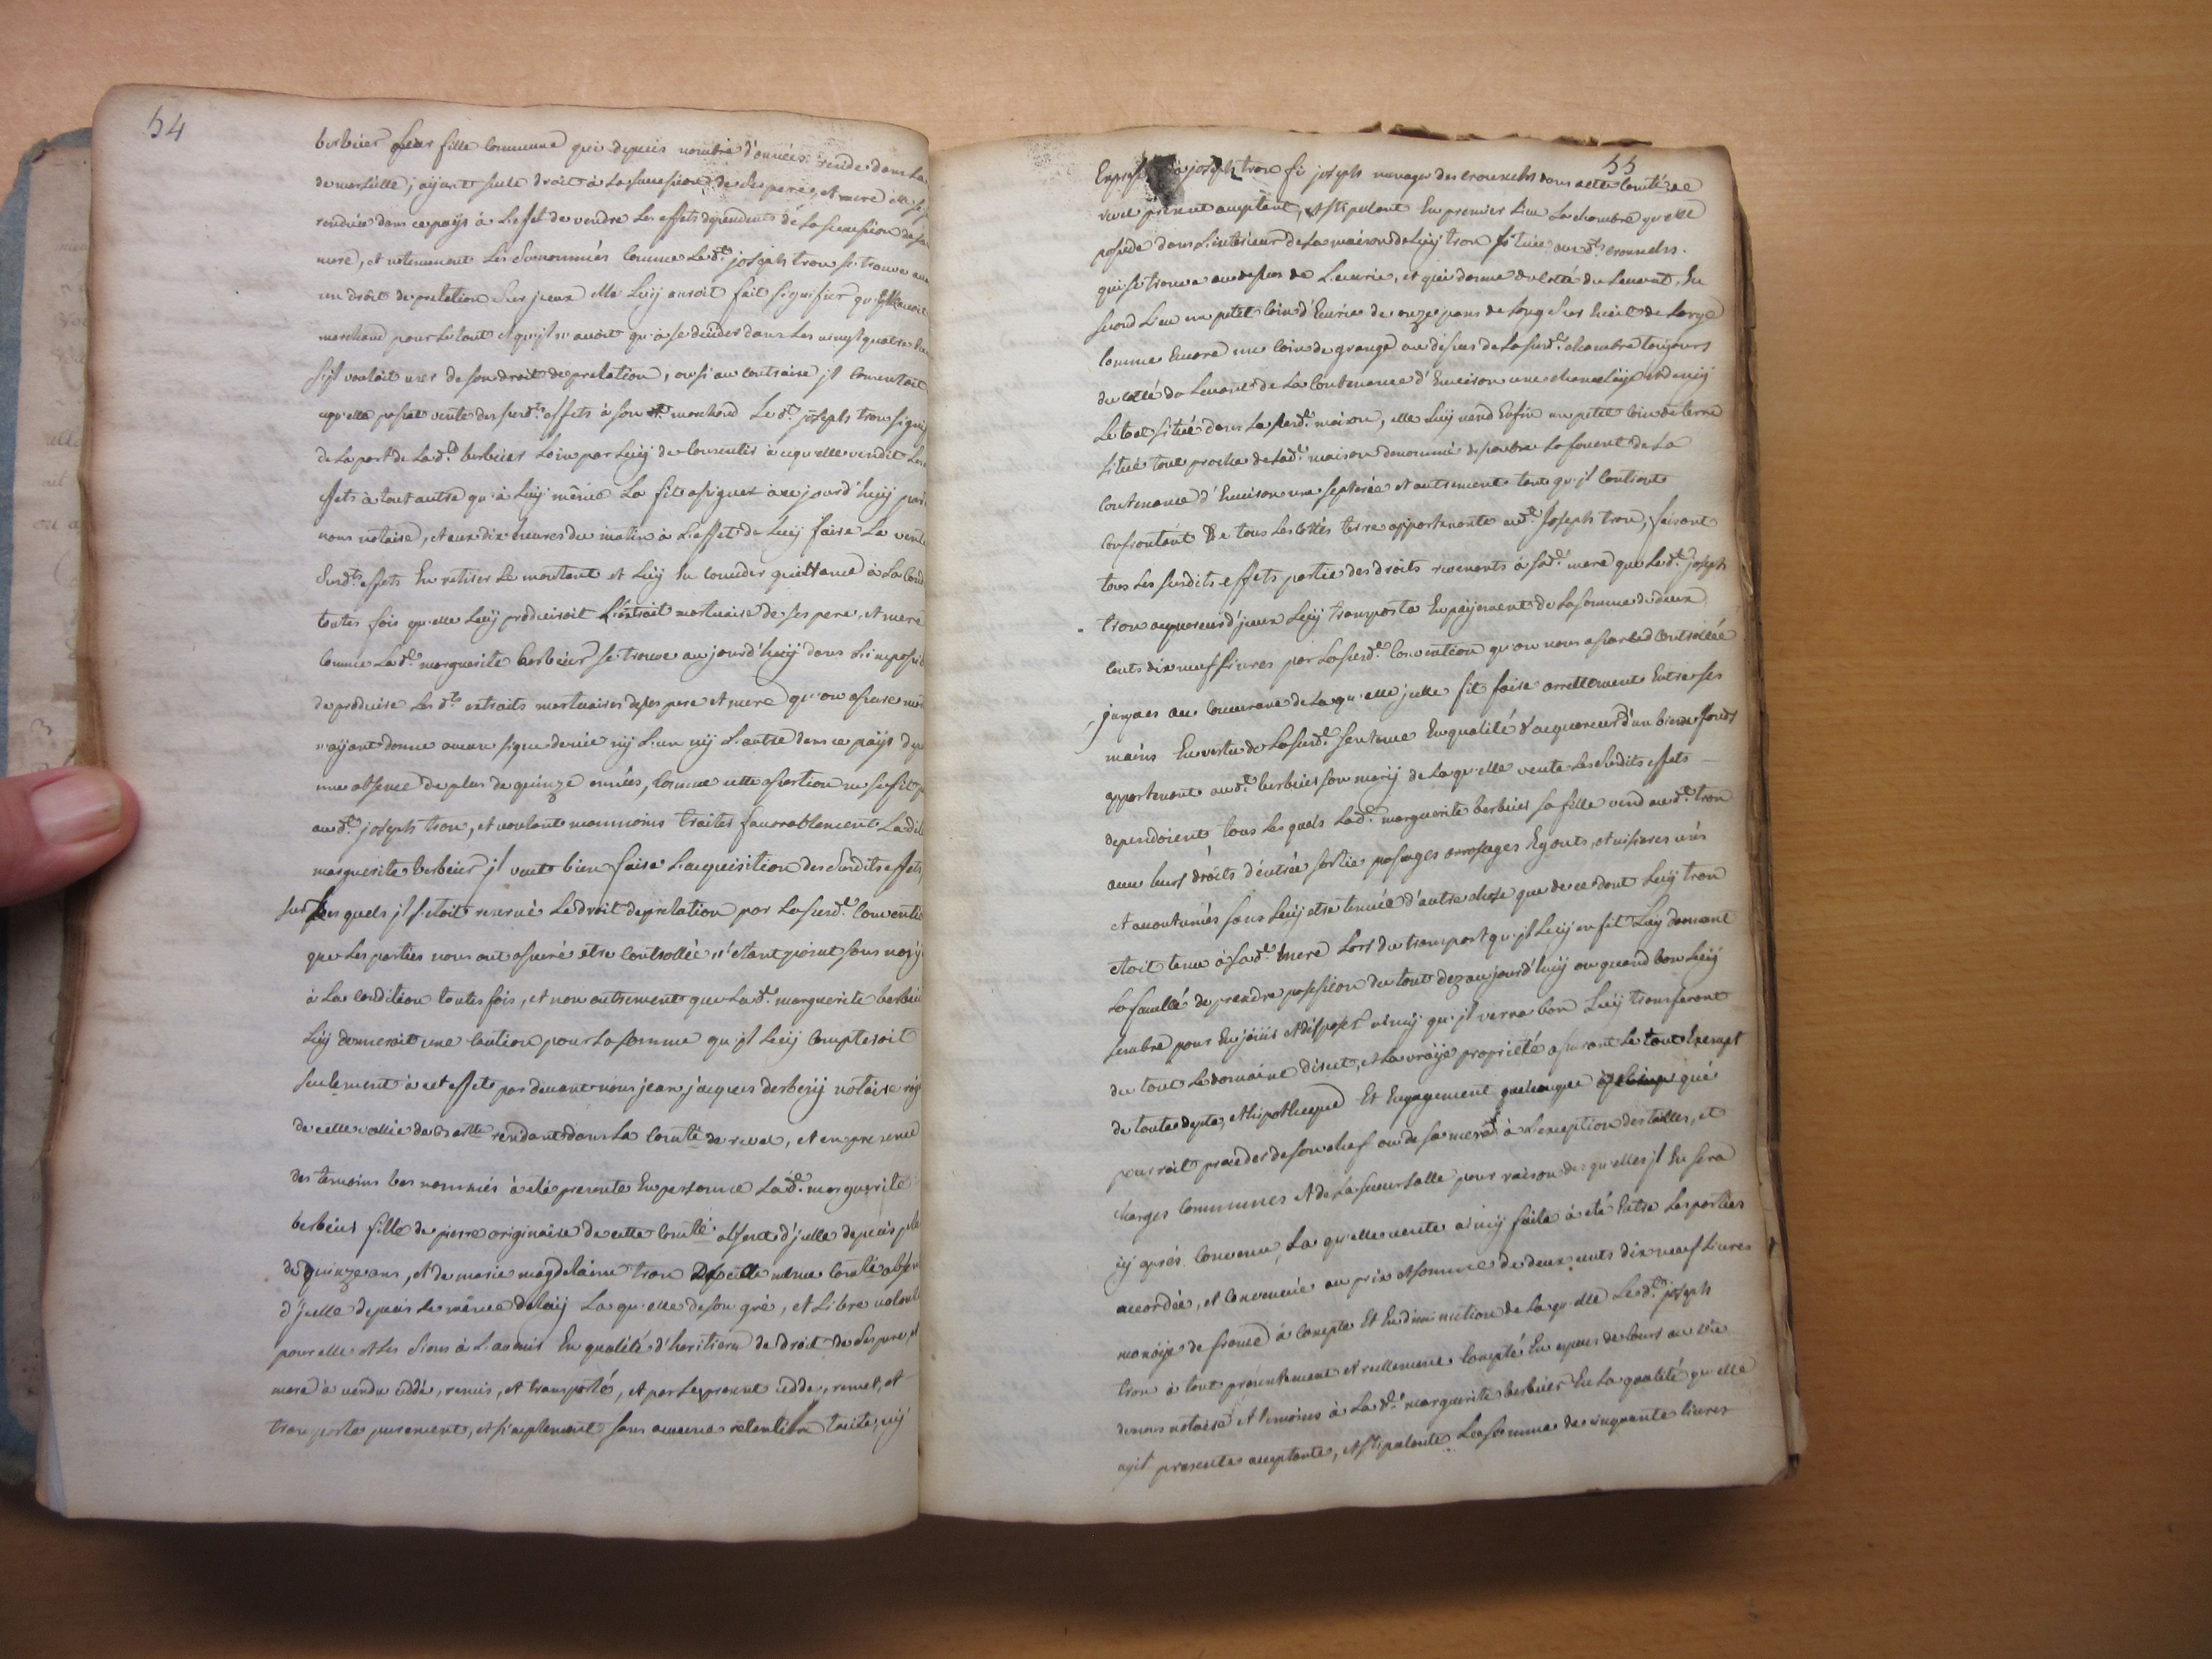 54
berbeier leur fille commune qui depuis nombre d'années reside dans la
de marseille, ayant seule droit à la succession de ses pere, et mere elle se
rendue dans ce païs à l'effet de vendre les effets dependents de la succession de sa
mere, et notemment les surnommés comme le d.t joseph tron se trouve
un droit de prelation sur jceux elle luy auroit fait signifier qu'elle avoit
marchand pour le tout et qu'jl n'avoit qu'à se decider dans les vingt quatre
s'jl vouloit user de son droit de prelation, ou si au contraire jl consentoit
qu'elle passat vente des surd.ts effets à son d.t marchand Le d.t joseph tron
de la part de la d.e berbeier loin par luy de consentir à ce qu'elle vendit les
effets à tout autre qu'à luy même la fit assigner à ce jourd'huy
nous notaire, et aux dix heures du matin à l'effet de luy faire la vente
surd.ts effets en retirer le montant et luy en conceder quittance à la
toutes fois qu'elle luy produiroit l'extrait mortuaire de ses pere, et mere
comme la d.e marguerite berbeier se trouve au jourd'huy dans l'jmpossib
de produire les d.ts extraits mortuaires de ses pere et mere qu'on assure
n'ayant donné aucun signe de vie ny l'un ny l'autre dans ce païs
une absence de plus de quinze années, comme cette assertion ne suffit
au d.t joseph tron, et voulant neanmoins traiter favorablement ladite
marguerite berbeier jl veut bien faire l'acquisition des surdits effets,
sur les quels jl s'etoit reservé le droit de prelation par la surd.e convention
que les parties nous ont assuré etre controllée n'étant point sous
à la condition toutes fois, et non autrement que la d.e marguerite berbeier
luy donneroit une caution pour la somme qu'jl luy compteroit
seulement à cet effet par devant nous jean jacques derbezÿ notaire
de cette vallée de Bar.tte residant dans la com.té de revel, et en presence
des temoins bas nommés à été presente en personne la d.e marguerite
berbeier fille de pierre originaire de cette com.té absent d'jcelle depuis
de quinze ans, et de marie magdelaine tron de cette même com.té
d'jcelle depuis le même delay la quelle de son gré, et libre
pour elle et les siens à l'avenir en qualité d'heritiere de droit de ses pere, et
mere à vendu cédé, remis, et transporté, et par le present cedde, remet, et
transporte purement, et simplement sans aucune retention tacite, ny
55
Expresse à joseph tron fi joseph menager des crouzels dans cette com.té de
revel present acceptant, et stipulant En premier lieu la chambre qu'elle
possede dans l'interieur de la maison de luy tron située aux d.ts crouzels.
qui se trouve au dessus de l'ecurie, et qui donne du cotté du levant, En
second lieu un petit coin d'Ecurie de onze pans de long sur huit de large
comme Encore un coin de grange au dessus de la surd.e chambre toujours
du cotté du levant de la contenance d'Environ une
le tout situé dans la surd.e maison, elle luy vend Enfin un petit coin de terre
situé tout proche de la d.e maison denommé de la
contenance d'Environ une et autrement tant qu'jl contient
confrontant De tous les cottés terre appartenante aud.t Joseph tron, faisant
tous les surdits effets partie des droits revenants à sa d.e mere que le d.t joseph
tron acquereur d'jceux luy transporta En payement de la somme de deux
cents dix neuf livres par la surd.e convention qu'on nous assure controllée
jusques au concurrant de la quelle jcelle fit faire arrettement Entre ses
mains En vertu de la surd.e sentence En qualité d'acquereur d'un bien fonds
appartenant aud.t berbeier son mary de la quelle vente les surdits effets
dependoient tous les quels la d.e marguerite berbeier sa fille vend aud.t tron
avec leurs droits d'entrée sortie passages arrosages Egouts, et usés
et accoutumés sans luy etre tenue d'autre chose que de ce dont luy tron
etoit tenu à sa d.e mere lors du transport qu'jl luy en fit luy donnant
la faculté de prendre possession du tout dez aujourd'huy ou quand bon luy
semblé pour En jouir et disposer ainsy qu'jl verra bon luy transferant
du tout le domaine direct, et la vraye propriété assurant le tout Exempt
de toute depte, et hipotheque Et Engagement quelconque
pourroit proceder de son chef ou de sa mere à l'exception des tailles, et
charges communes et de la pour raison des quelles jl En sera
cy après convenu, la quelle vente ainsy faite à été Entre les parties
accordée, et convenue au prix et somme de deux cents dix neuf livres
monoye de france à compte Et En diminution de la quelle le d.t joseph
tron à tout presentement et réellement compté En especes de cours au vüe
de nous notaire et temoins à la d.e marguerite berbeier En la qualité qu'elle
agit presente acceptante, et stipulante la somme de cinquante livres